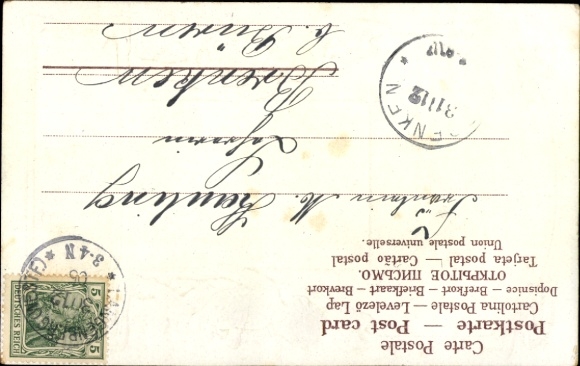 Carte Postale
Postkarte — Post card
Cartolina Postale — Levelező Lap
Dopisnice — Brefkort — Briefkaart — Brevkort
ОТКРЫТОЕ ПИСЬМО.
Tarjeta postal — Cartão postal
Union postale universelle.
Fräulein M.
Lehrerin
Brenken
b. Büren
5 5
DEUTSCHES REICH
3-4 N
ENKEN
31 12